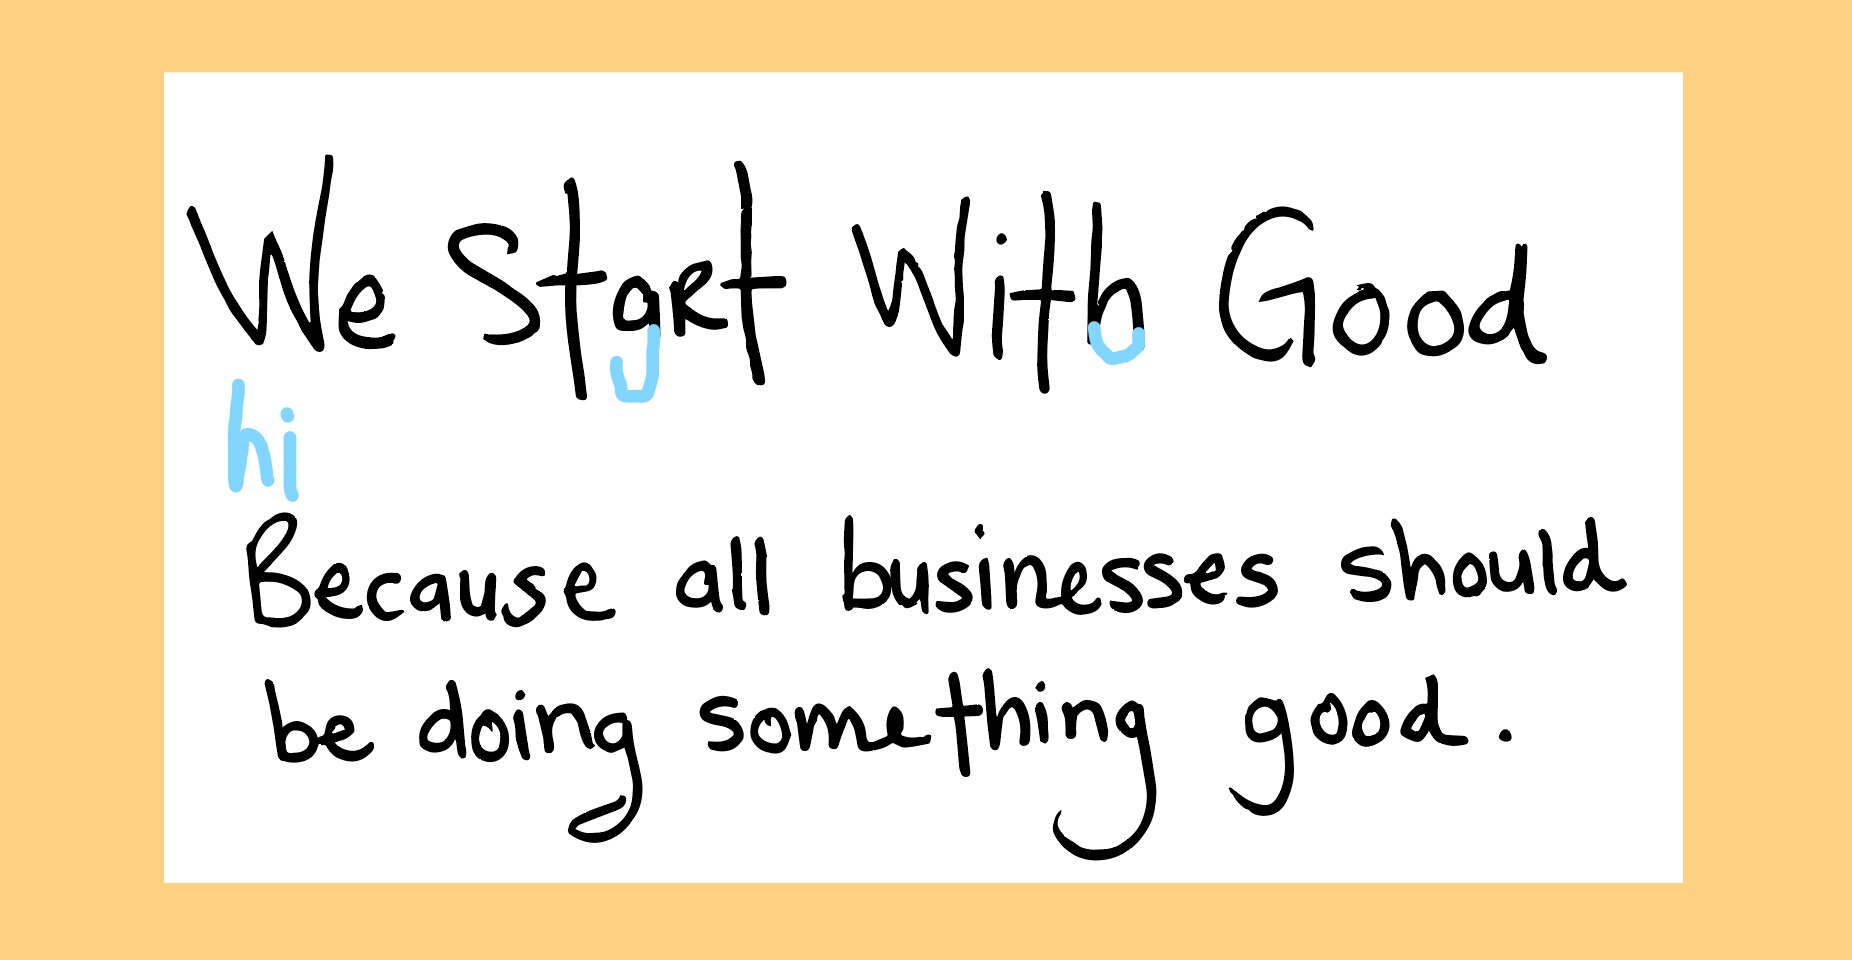 We Stgrt Witb Good
hi
Because all businesses should
be doing something good.